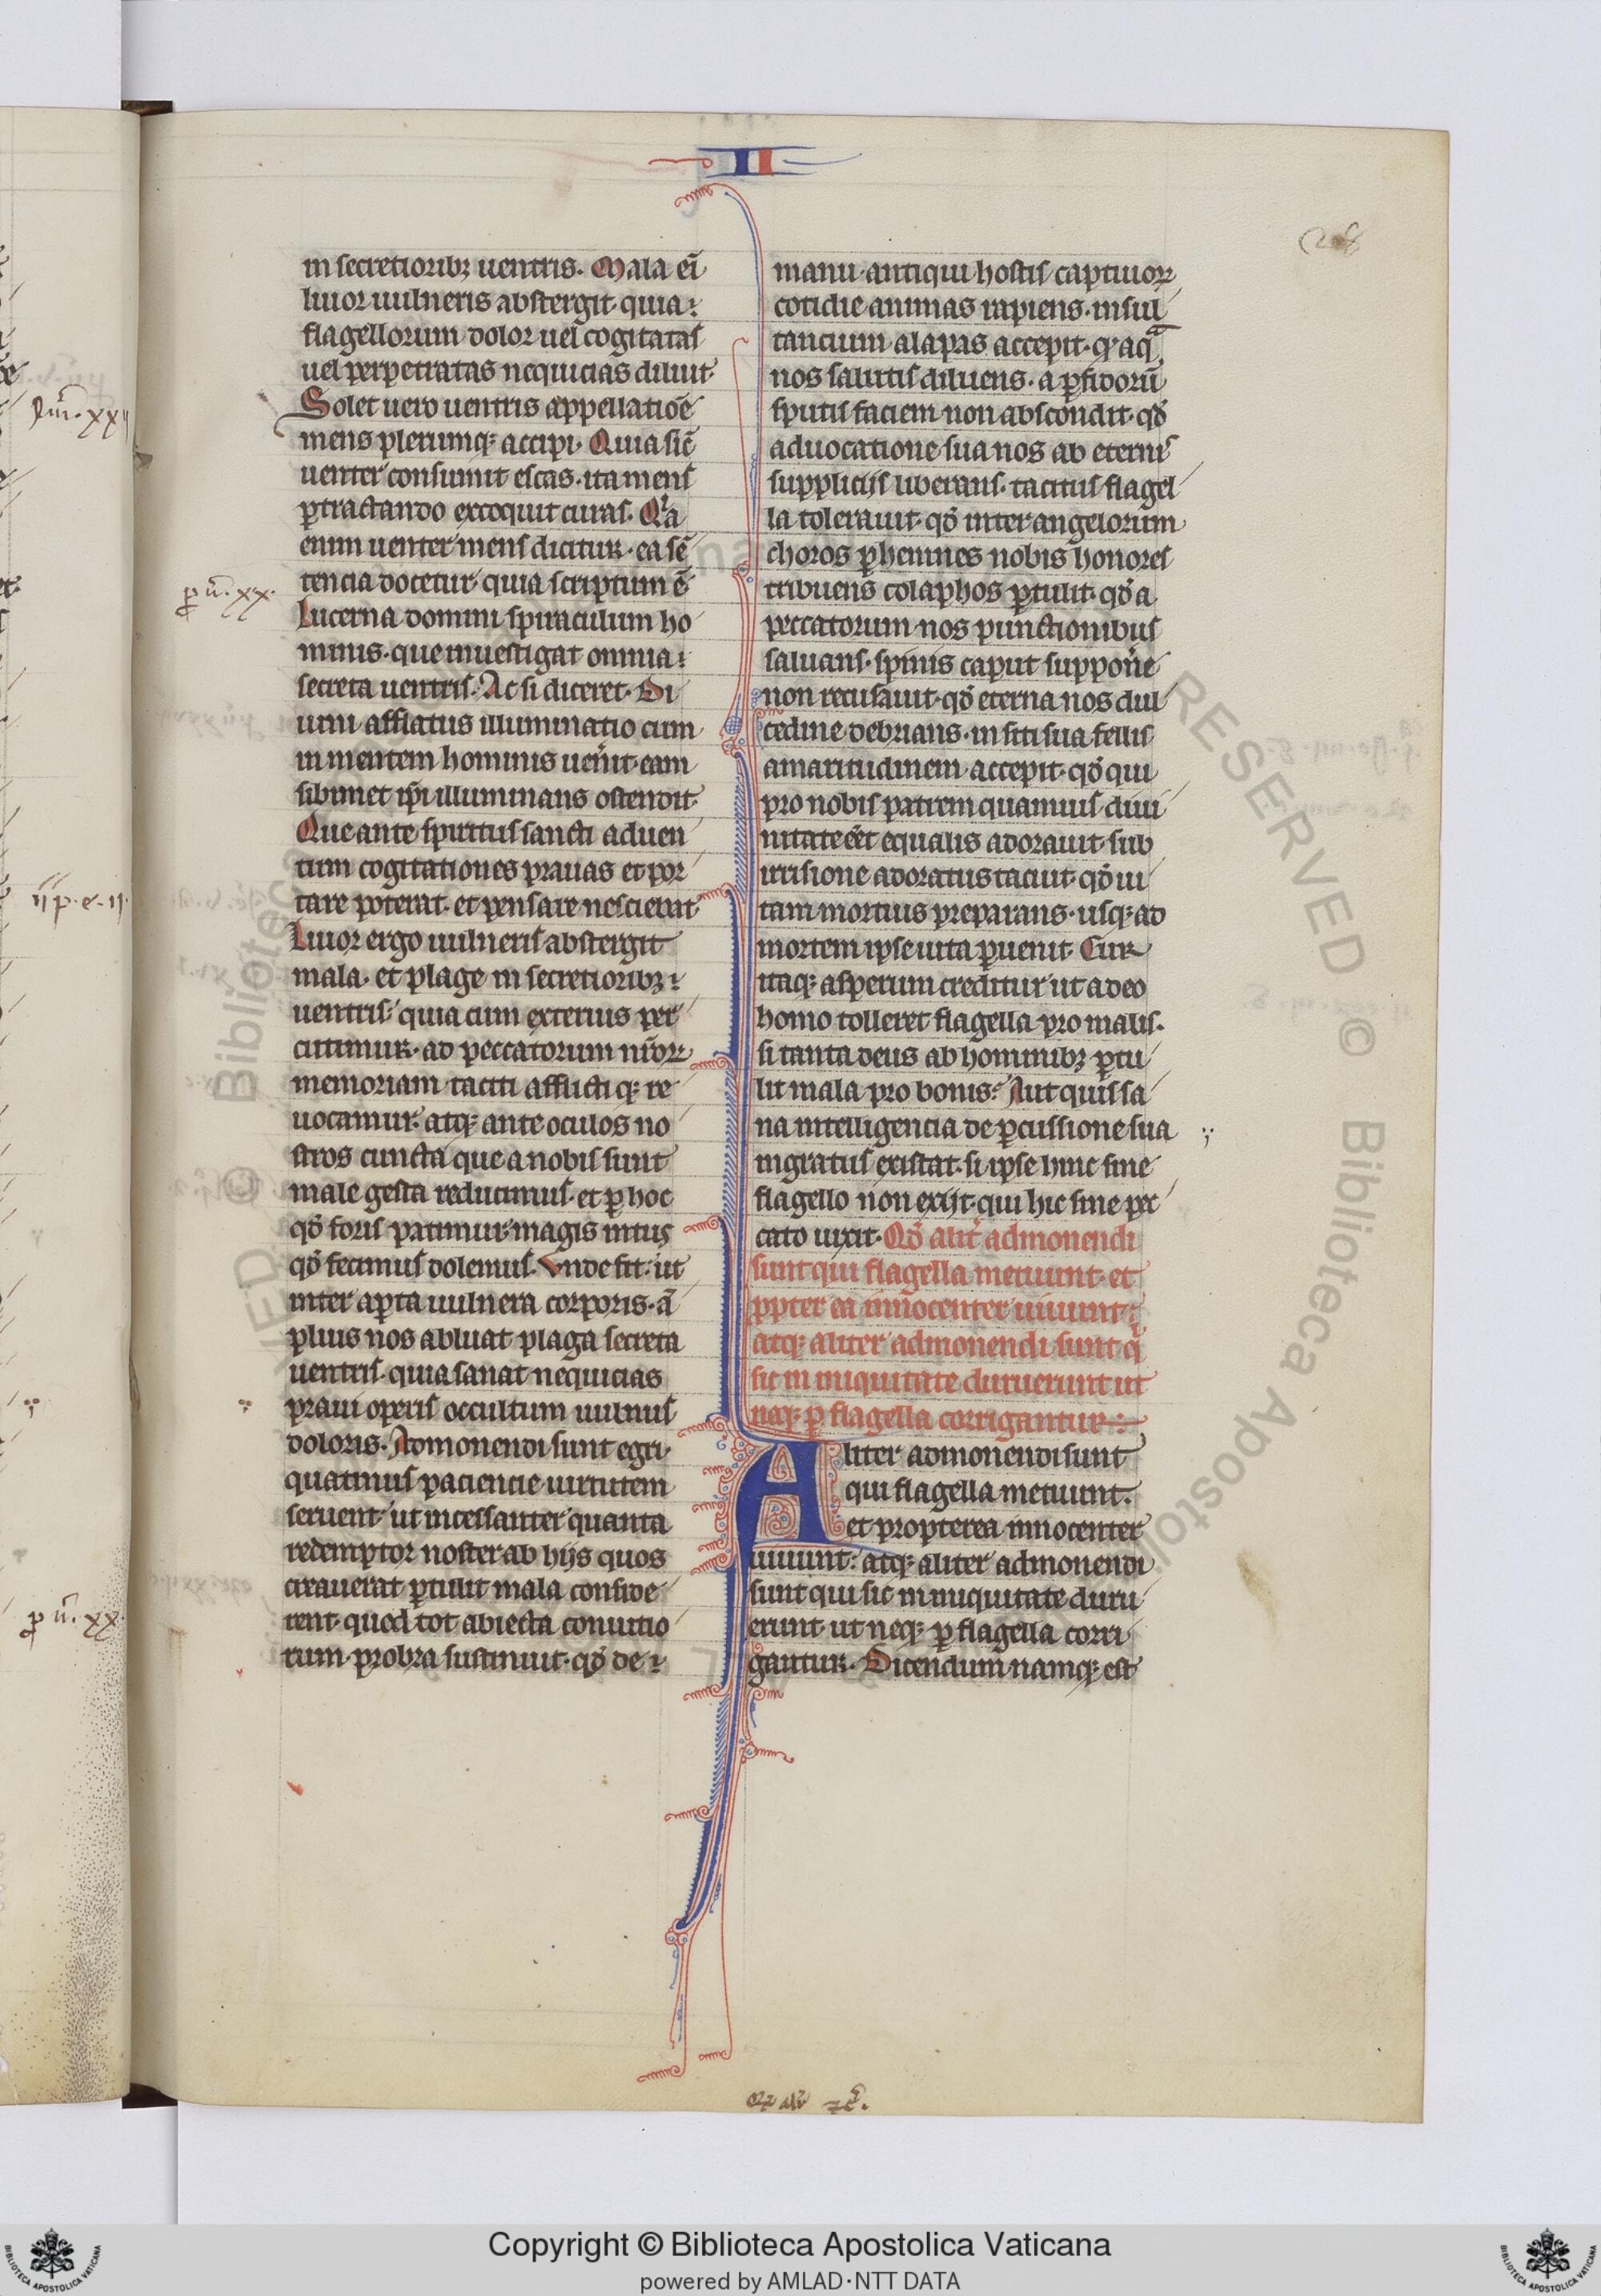 II
in secretioribꝫ uentris. Mala eī
liuor uulneris abstergit quia
flagellorum dolor uel cogitatas
uel perpetratas nequicias diluit
Solet uero uentris appellatiōe
mens plerumqꝫ accipi. Quia sic̄
uenter consumit escas. ita mens
ꝑtractando excoquit curas. Qͥa
enim uenter mens dicitur. ea sē
tencia docetur quia scriptum ē
ꝓū. xx.
Lucerna domini spiraculum ho
minis. que inuestigat omnia
secreta uentris. Ac si diceret. Di
uini afflatus illuminatio cum
in mentem hominis uen̄it eam
sibimet ip̄i illuminans ostendit.
Que ante spiritus sancti aduen
tum cogitationes prauas et por
tare poterat. et pensare nesciebat
Liuor ergo uulneris abstergit
mala. et plage in secretioribꝫ
uentris. quia cum exterius per
cutimur. ad peccatorum nr̄orꝝ
memoriam taciti afflictiqꝫ re
uocamur. atqꝫ ante oculos no
stros cuncta que a nobis sunt
male gesta reducimus. et ꝑ hoc
qđ foris patimur magis intus
qđ fecimus dolemus. Vnde fit. ut
inter aꝑta uulnera corporis. ā
plius nos abluat plaga secreta
uentris. quia sanat nequicias
praui operis occultum uulnus
doloris. Admonendi sunt egri.
quatinus paciencie uirtutem
seruent. ut incessanter quanta
redemptor noster ab hijs quos
creauerat ꝑtulit mala conside
rent. quod tot abiecta conuitio
rum probra sustinuit. qđ de
manu antiqui hostis captiuorꝝ
cotidie animas rapiens. insul
tancium alapas accepit. qđ aqͣ
nos salutis diluens. a ꝑfidorū
sputis faciem non abscondit. qđ
aduocatione sua nos ab eternis
supplicijs liberans. tacitus flagel
la tolerauit. qđ inter angelorum
choros ꝑhennes nobis honores
tribuens colaphos ꝑtulit. qđ a
peccatorum nos punctionibus
saluans. spinis caput suppon̄e
non recusauit. qđ eterna nos dul
cedine debrians. in siti sua fellis
amaritudinem accepit. qđ qui
pro nobis patrem quamuis diui
nitate eēt equalis adorauit. sub
irrisione adoratus tacuit. qđ ui
tam mortuis preparans. usqꝫ ad
mortem ipse uita ꝑuenit. Cur
itaqꝫ asperum creditur ut a deo
homo tolleret flagella pro malis.
si tanta deus ab hominibꝫ ꝑtu
lit mala pro bonis. Aut quis sa
na intelligencia de ꝑcussione sua
ingratus existat. si ipse hinc sine
flagello non exijt. qui hic sine pec
cato uixit. Qđ alit̄ admonendi
sunt qui flagella metuunt. et
ꝓpter ea innocenter uiuunt.
atqꝫ aliter admonendi sunt qͥ
sic in iniquitate duruerunt ut
neqꝫ ꝑ flagella corrigantur.
Aliter admonendi sunt
qui flagella metuunt.
et propterea innocenter
uiuunt. atqꝫ aliter admonendi
sunt qui sic in iniquitate duru
erunt. ut neqꝫ ꝑ flagella corri
gantur. Dicendum namqꝫ est
Copyright © Biblioteca Apostolica Vaticana
powered by AMLAD·NTT DATA